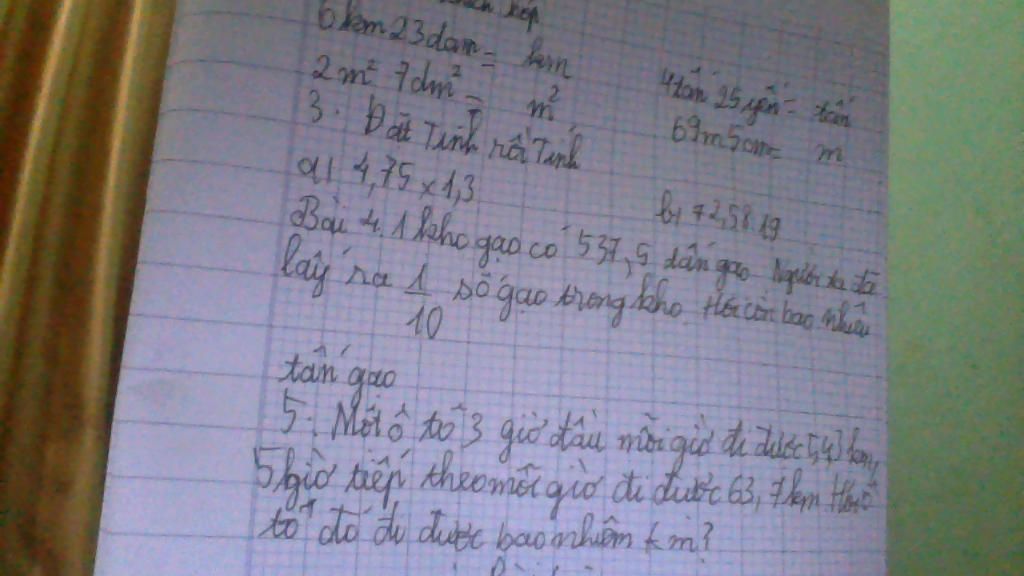 6km 23dam = km
4tấn 25yến = tấn
2m² 7dm² = m²
69m5cm = m
3. Đặt Tính rồi Tính
a) 4,75 x 1,3
Bài 4. 1 kho gạo có 537,5 tấn gạo Người ta đã
lấy ra 1/10 số gạo trong kho. Hỏi còn bao nhiêu
tấn gạo
5: Một ô tô 3 giờ đầu mỗi giờ đi được km,
5 giờ tiếp theo mỗi giờ đi được 63,7km Hỏi ô
tô đó đi được bao nhiêm km?